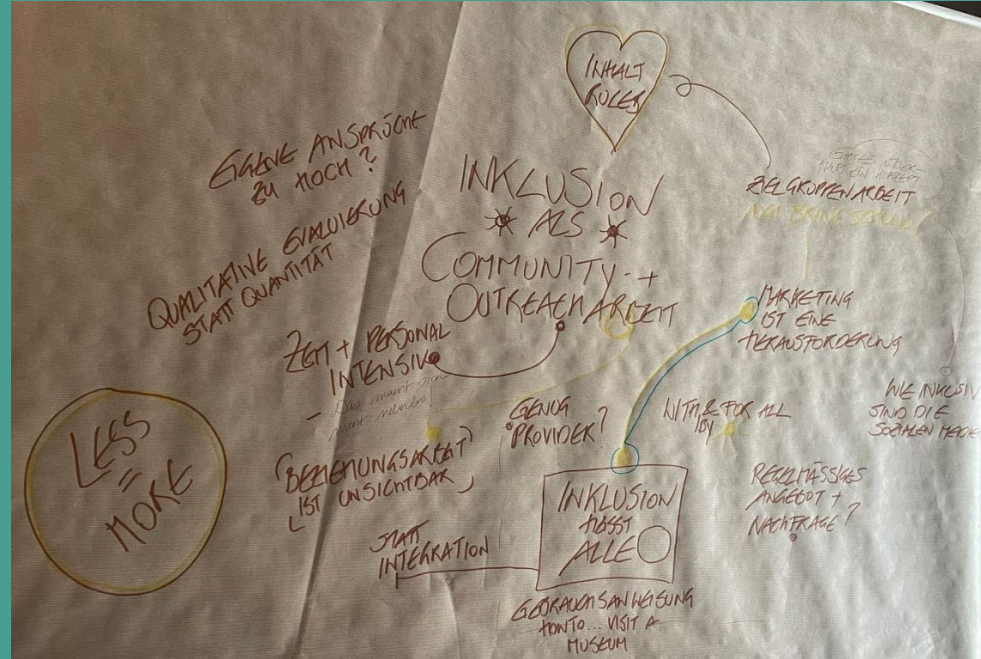 INHALT
RULES
EIGENE ANSPRÜCHE
ZU HOCH?
QUALITATIVE EVALUIERUNG
STATT QUANTITÄT
INKLUSION
ALS
COMMUNITY- +
OUTREACH ARBEIT
ZIELGRUPPENARBEIT
ZEIT + PERSONAL
INTENSIV
MARKETING
IST EINE
HERAUSFORDERUNG
WIE INKLUSIV
SIND DIE
SOZIALEN MEDIE
LESS
=
MORE
(BEZIEHUNGSARBEIT)
IST UNSICHTBAR
GENUG
PROVIDER?
WITH & FOR ALL
BY
REGELMÄSSIGES
ANGEBOT +
NACHFRAGE?
STATT
INTEGRATION
INKLUSION
HEISST
ALLE
GEBRAUCHSANWEISUNG
HOWTO... VISIT A
MUSEUM